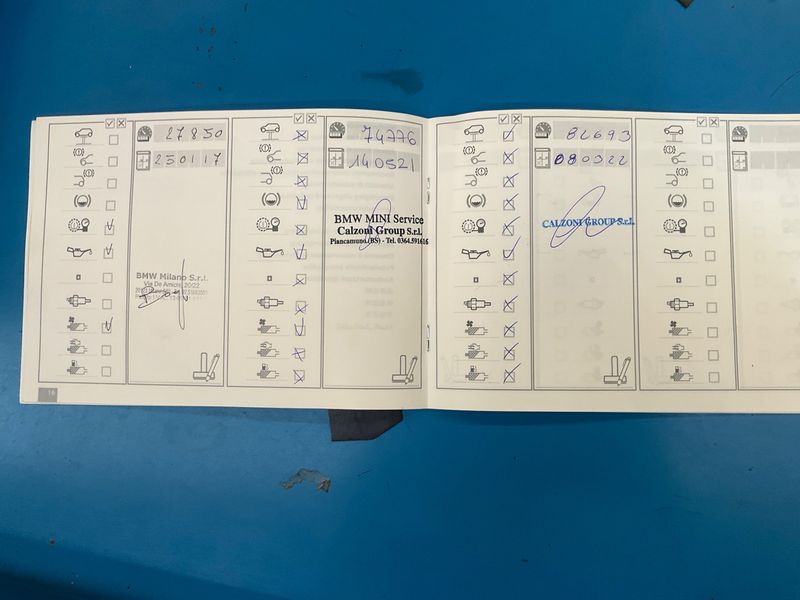 27850
250117
BMW Milano S.r.l.
Via De Amicis, 20/22
74776
140521
BMW MINI Service
Calzoni Group S.r.l.
Piancamuno (BS) - Tel. 0364.591616
82693
080322
CALZONI GROUP S.r.l.
16